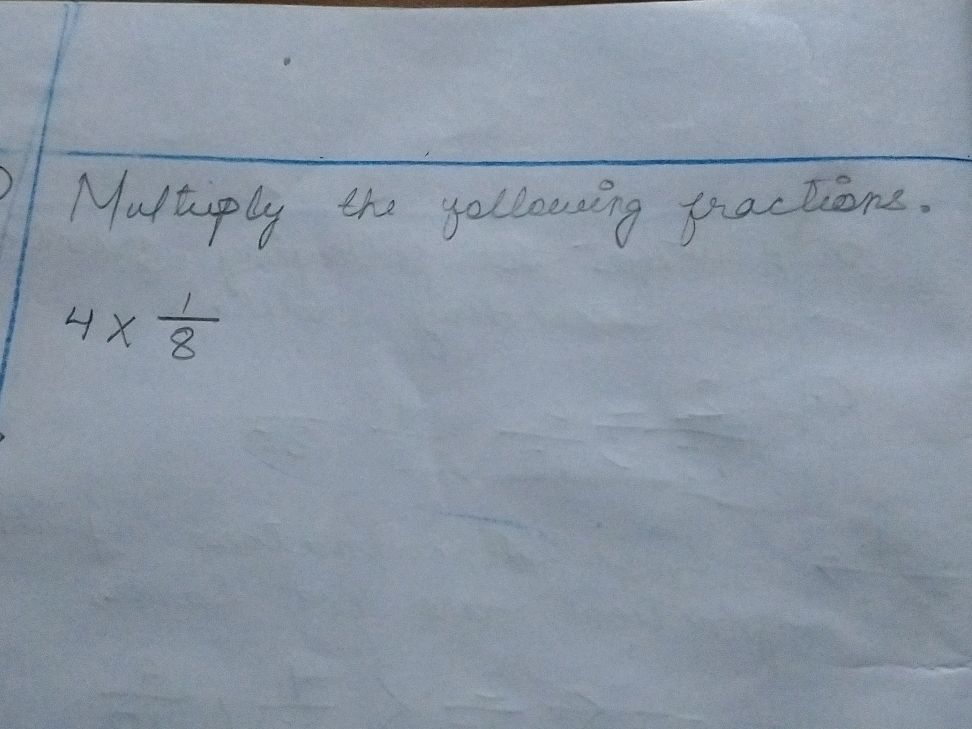 Multiply the following fractions.
4 × 1/8